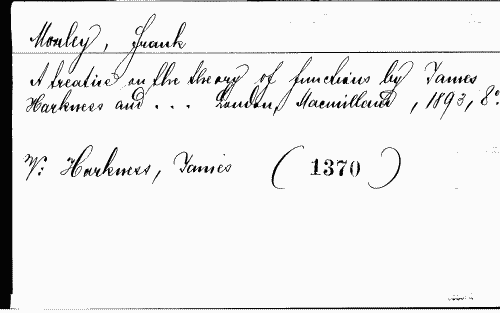 Morley, Frank
A treatise on the theory of functions by James
Harkness and ... London, Macmilland, 1893, 8º.
V: Harkness, James (1370)